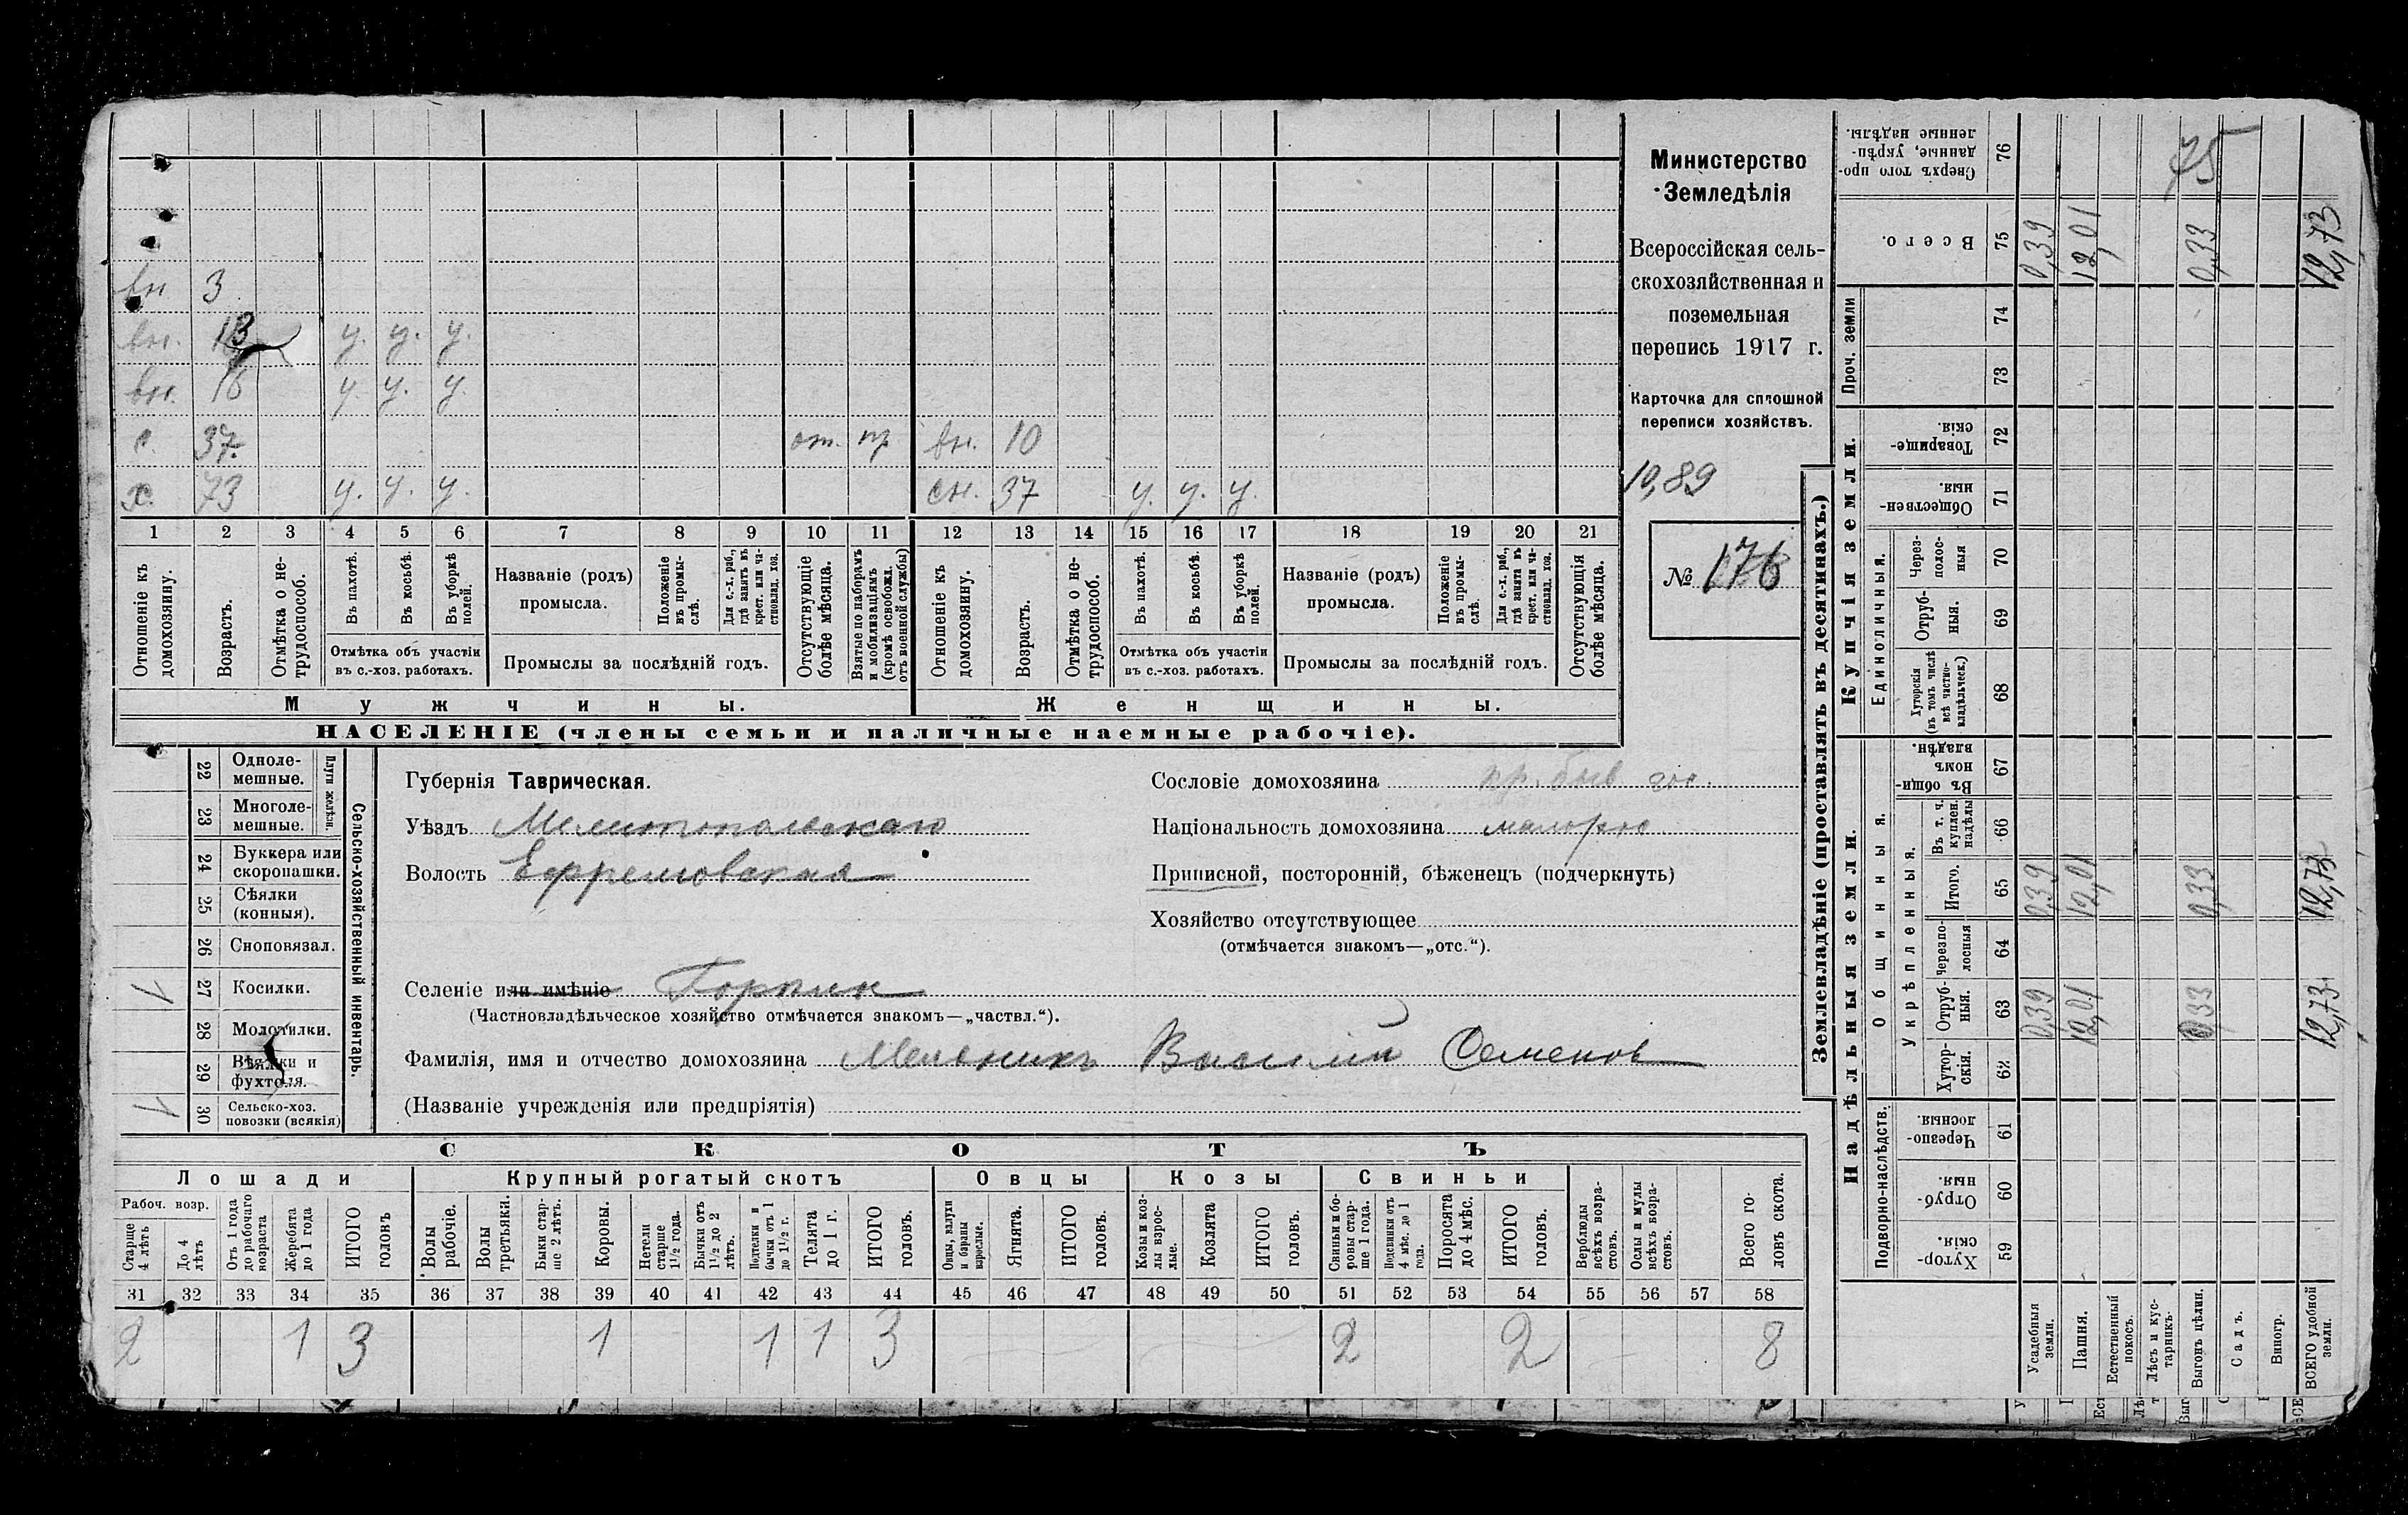 вн 3
вн. 13 у. у. у.
вн. 16 у. у. у.
с. 37. от. пр вн. 10
х. 73 у. у. у. сн. 37 у. у. у.
1 2 3 4 5 6 7 8 9 10 11 12 13 14 15 16 17 18 19 20 21
Отношеніе къ домохозяину.
Возрастъ.
Отмѣтка о не-трудоспособ.
Въ пахотѣ.
Въ косьбѣ.
Въ уборкѣ полей.
Отмѣтка объ участіи
въ с.-хоз. работахъ.
Названіе (родъ)
промысла.
Положеніе въ промы-слѣ.
Для с.-х. раб., гдѣ занятъ въ крест. или ча-стновлад. хоз.
Промыслы за послѣдній годъ.
Отсутствующіе болѣе мѣсяца.
Взятые по наборамъ и мобилизаціямъ (кромѣ освобожд. отъ военной службы)
Отношеніе къ домохозяину.
Возрастъ.
Отмѣтка о не-трудоспособ.
Въ пахотѣ.
Въ косьбѣ.
Въ уборкѣ полей.
Отмѣтка объ участіи
въ с.-хоз. работахъ.
Названіе (родъ)
промысла.
Положеніе въ промы-слѣ.
Для с.-х. раб., гдѣ занята въ крест. или ча-стновлад. хоз.
Промыслы за послѣдній годъ.
Отсутствующія болѣе мѣсяца.
Мужчины. Женщины.
НАСЕЛЕНІЕ (члены семьи и наличные наемные рабочіе).
Министерство
Земледѣлія
Всероссійская сель-
скохозяйственная и
поземельная
перепись 1917 г.
Карточка для сплошной
переписи хозяйствъ.
10,89
№ 176
22 Одноле-мешные.
23 Многоле-мешные.
Плуги желѣзн.
24 Буккера или скоропашки.
25 Сѣялки (конныя).
26 Сноповязал.
27 Косилки. V
28 Молотилки.
29 Вѣялки и фухтеля.
30 Сельско-хоз. повозки (всякія) V
Сельско-хозяйственный инвентарь.
Губернія Таврическая.
Уѣздъ Мелитопольскаго
Волость Ефремовская
Селеніе или имѣніе Горпин
(Частновладѣльческое хозяйство отмѣчается знакомъ—„частвл.“).
Фамилія, имя и отчество домохозяина Мельникъ Василій Семенов
(Названіе учрежденія или предпріятія)
Сословіе домохозяина кр. быв. гос.
Національность домохозяина малорос
Приписной, посторонній, бѣженецъ (подчеркнуть)
Хозяйство отсутствующее
(отмѣчается знакомъ—„отс.“).
СКОТЪ
Лошади Крупный рогатый скотъ Овцы Козы Свиньи
Рабоч. возр.
Старше 4 лѣтъ
До 4 лѣтъ
Отъ 1 года до рабочаго возраста
Жеребята до 1 года
ИТОГО головъ
Волы рабочіе.
Волы третьяки.
Быки стар-ше 2 лѣтъ.
Коровы.
Нетели старше 1½ года.
Бычки отъ 1½ до 2 лѣтъ.
Подтелки и бычки отъ 1 до 1½ г.
Телята до 1 г.
ИТОГО головъ.
Овцы, валухи и бараны взрослые.
Ягнята.
ИТОГО головъ.
Козы и коз-лы взрос-лые.
Козлята
ИТОГО головъ.
Свиньи и бо-ровы стар-ше 1 года.
Подсвинки отъ 4 мѣс. до 1 года.
Поросята до 4 мѣс.
ИТОГО головъ.
Верблюды всѣхъ возра-стовъ.
Ослы и мулы всѣхъ возра-стовъ.
Всего го-ловъ скота.
31 32 33 34 35 36 37 38 39 40 41 42 43 44 45 46 47 48 49 50 51 52 53 54 55 56 57 58
2 1 3 1 1 1 3 2 2 8
Землевладѣніе (проставлять въ десятинахъ.)
Надѣльныя земли. Купчія земли. Проч. земли
Подворно-наслѣдств.
Общинныя.
Укрѣпленныя.
Единоличныя.
59 Хутор-скія.
60 Отруб-ныя.
61 Черезпо-лосныя.
62 Хутор-скія.
63 Отруб-ныя.
64 Черезпо-лосныя
65 Итого.
66 Въ т. ч. куплен. надѣлы
67 Въ общи-номъ владѣн.
68 Хуторскія (въ томъ числѣ всѣ частно-владѣльческ.)
69 Отруб-ныя.
70 Через-полос-ныя
71 Обществен-ныя.
72 Товарище-скія.
73
74
75 Всего.
76 Сверхъ того про-данные, укрѣп-ленные надѣлы.
75
Усадебныя земли. 0,39 0,39 0,39
Пашня. 12,01 12,01 12,01
Естественный покосъ.
Лѣсъ и кус-тарникъ.
Выгонъ цѣлин. 0,33 0,33 0,33
Садъ.
Виногр.
ВСЕГО удобной земли. 12,73 12,73 12,73